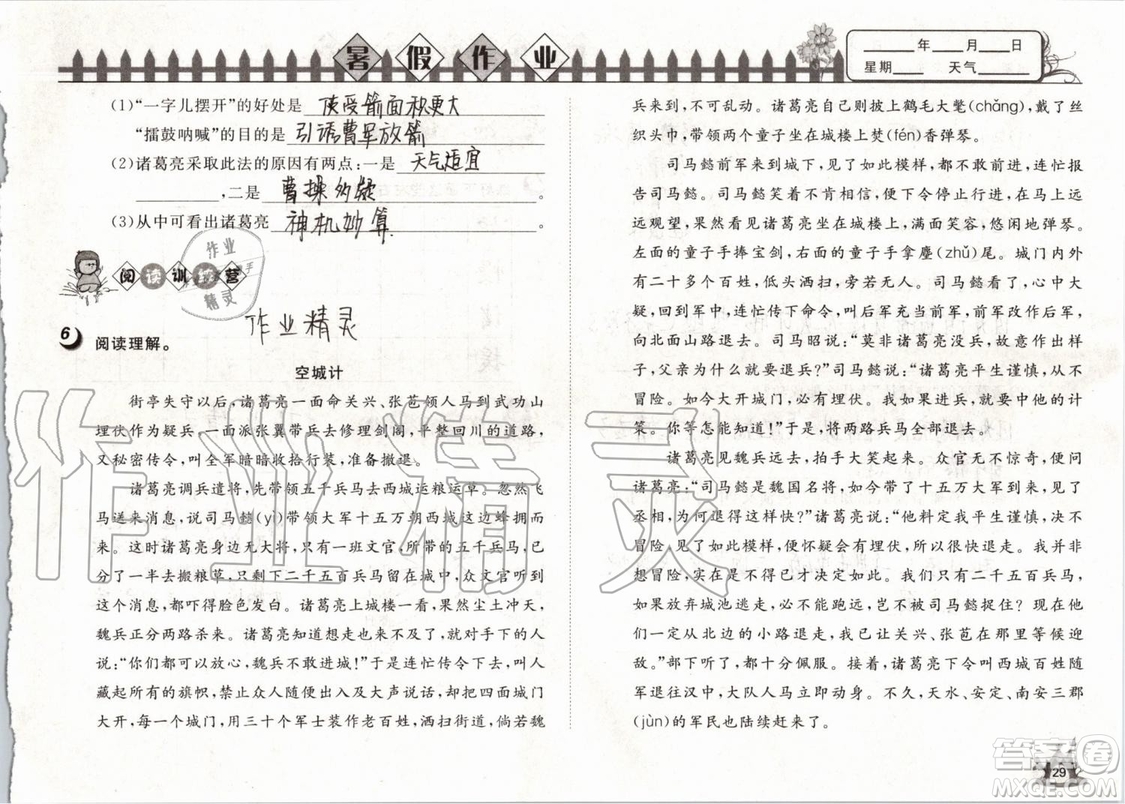 暑假作业
____年__月__日
星期____ 天气____
(1)“一字儿摆开”的好处是 使受箭面积更大
“擂鼓呐喊”的目的是 引诱曹军放箭
(2)诸葛亮采取此法的原因有两点:一是 天气适宜
,二是 曹操多疑 。
(3)从中可看出诸葛亮 神机妙算 。
阅读训练营
作业
精灵
作业精灵
6 阅读理解。
空城计
街亭失守以后,诸葛亮一面命关兴、张苞领人马到武功山
埋伏作为疑兵,一面派张翼带兵去修理剑阁,平整回川的道路,
又秘密传令,叫全军暗暗收拾行装,准备撤退。
诸葛亮调兵遣将,先带领五千兵马去西城运粮草。忽然飞
马送来消息,说司马懿(yì)带领大军十五万朝西城这边蜂拥
来。这时诸葛亮身边无大将,只有一班文官,所带的五千兵马,又
分了一半去搬粮草,只剩下二千五百兵马在城里,众文官听到
这个消息,都吓得脸色发白。诸葛亮上城楼一看,果然尘土冲天,
魏兵正分两路杀来。诸葛亮知道想走也来不及,就对手下的人
说:“你们都可以放心,魏兵不敢进城!”于是连忙传令,叫人藏
起所有的旗帜,禁止众人随意出入及大声说话,却把四面城门
大开,每一个城门,用三十个军士装作老百姓,洒扫街道,倘若魏
兵来到,不可乱动。诸葛亮自己则披上鹤毛大氅(chǎng),戴了丝
织头巾,带领两个童子坐在城楼上焚(fén)香弹琴。
司马懿前军来到城下,见了如此模样,都不敢前进,连忙报
告司马懿。司马懿笑着不肯相信,便下令停止行进,自己在马上远
远观望。果然看见诸葛亮坐在城楼上,满面笑容,悠闲地弹琴。
左面的童子手捧宝剑,右面的童子手拿麈(zhǔ)尾。城门内外
大约有二十多个百姓,低头洒扫,旁若无人。司马懿心里很疑惑,
回到军中,连忙传下命令,叫后军充当前军,前军改作后军,
向北面山路退去。司马昭说:“莫非诸葛亮没有兵,故意作出这
样子,父亲为什么就要退兵?”司马懿说:“诸葛亮平生谨慎,从不
冒险。如今大开城门,必有埋伏。我如果进兵,就中了他的计
策。你等怎能知道!”于是,将两路兵马全部退去。
诸葛亮见魏兵退去,拍手大笑起来。众官无不惊奇,便问
诸葛亮:“司马懿是魏国名将,今天带了十五万大军到此,见了
丞相,为何退得这样快?”诸葛亮说:“他料定我平生谨慎,决不
冒险,见如此模样,便怀疑会有埋伏,所以很快退走。我不是要
想冒险,实在是不得已才决定如此。我们只有二千五百兵马,
如果放弃城池逃走,能不能跑远,不会被司马懿捉住?现在他
一定从北边的小路退走,我已叫关兴、张苞在那里等候迎
敌。”部下听了,都十分佩服。接着,诸葛亮下令叫西城百姓随
军退往汉中,大队人马立即动身。不久,天水、安定、南安三郡
(jùn)的军民也陆续赶来了。
29
作业精灵
答案圈
MXQE.COM